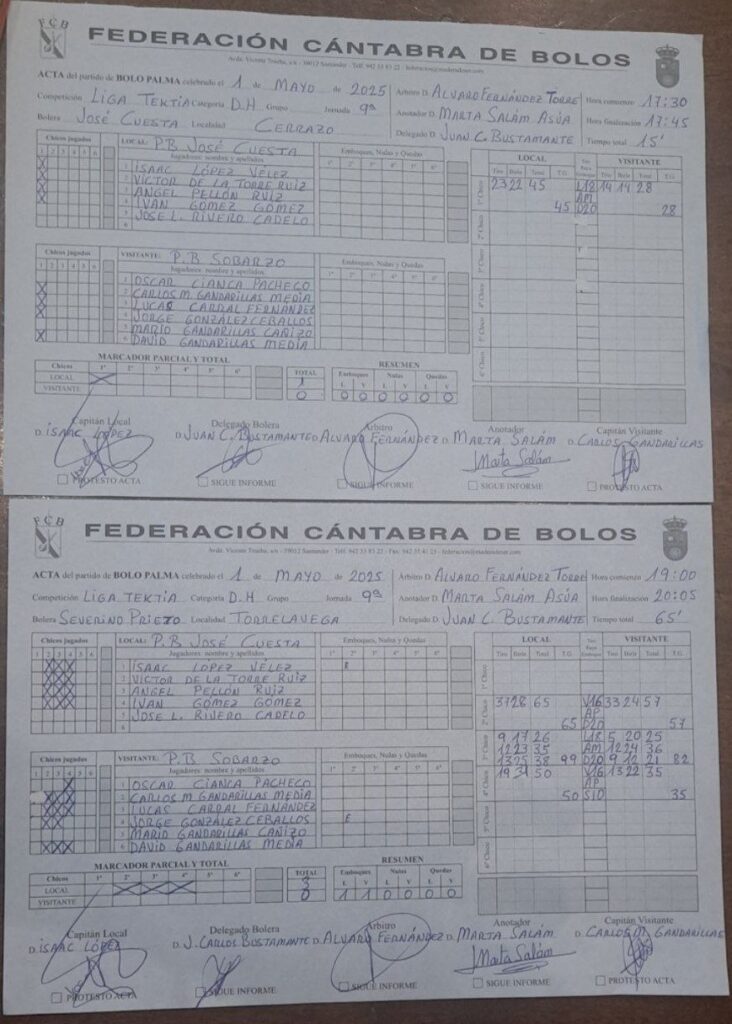 FCB
FEDERACIÓN CÁNTABRA DE BOLOS
Avda. Vicente Trueba, s/n - 39012 Santander - Telf: 942 33 83 22 - federacion@maderadeser.com
ACTA del partido de BOLO PALMA celebrado el 1 de MAYO de 2025
Arbitro D. ALVARO FERNÁNDEZ TORRE
Hora comienzo 17:30
Competición LIGA TEKTIA Categoría D.H Grupo Jornada 9ª
Anotador D. MARTA SALÁM ASÚA
Hora finalización 17:45
Bolera JOSÉ CUESTA Localidad CERRAZO
Delegado D. JUAN C. BUSTAMANTE
Tiempo total 15'
Chicos jugados
1 2 3 4 5 6
LOCAL: P.B JOSÉ CUESTA
Jugadores: nombre y apellidos
Emboques, Nulas y Quedas
1º 2º 3º 4º 5º 6º
1 ISAAC LÓPEZ VÉLEZ
2 VICTOR DE LA TORRE RUIZ
3 ANGEL PELLÓN RUIZ
4 IVAN GÓMEZ GÓMEZ
5 JOSE L. RIVERO CADELO
6
LOCAL VISITANTE
Tiro Birle Total T.G. Tiro Birle Total T.G.
1º Chico 23 22 45 L12 14 14 28
AM
45 D20 28
2º Chico
3º Chico
4º Chico
5º Chico
6º Chico
Chicos jugados
1 2 3 4 5 6
VISITANTE: P.B SOBARZO
Jugadores: nombre y apellidos
Emboques, Nulas y Quedas
1º 2º 3º 4º 5º 6º
1 OSCAR CIANCA PACHECO
2 CARLOS M. GANDARILLAS MEDIA
3 LUCAS CARRAL FERNÁNDEZ
4 JORGE GONZÁLEZ CEBALLOS
5 MARIO GANDARILLAS CAÑIZO
6 DAVID GANDARILLAS MEDIA
MARCADOR PARCIAL Y TOTAL
Chicos 1º 2º 3º 4º 5º 6º TOTAL
LOCAL X 1
VISITANTE 0
RESUMEN
Emboques Nulas Quedas
L V L V L V
0 0 0 0 0 0
Capitán Local
D. ISAAC LÓPEZ
Delegado Bolera
D. JUAN C. BUSTAMANTE
Arbitro
D. ALVARO FERNÁNDEZ
Anotador
D. MARTA SALÁM
Marta Salám
Capitán Visitante
D. CARLOS GANDARILLAS
PROTESTO ACTA
SIGUE INFORME
SIGUE INFORME
SIGUE INFORME
PROTESTO ACTA
FCB
FEDERACIÓN CÁNTABRA DE BOLOS
Avda. Vicente Trueba, s/n - 39012 Santander - Telf: 942 33 83 22 - Fax: 942 35 41 23 - federacion@maderadeser.com
ACTA del partido de BOLO PALMA celebrado el 1 de MAYO de 2025
Arbitro D. ALVARO FERNÁNDEZ TORRE
Hora comienzo 19:00
Competición LIGA TEKTIA Categoría D.H Grupo Jornada 9ª
Anotador D. MARTA SALÁM ASÚA
Hora finalización 20:05
Bolera SEVERINO PRIETO Localidad TORRELAVEGA
Delegado D. JUAN C. BUSTAMANTE
Tiempo total 65'
Chicos jugados
1 2 3 4 5 6
LOCAL: P.B JOSÉ CUESTA
Jugadores: nombre y apellidos
Emboques, Nulas y Quedas
1º 2º 3º 4º 5º 6º
1 ISAAC LÓPEZ VÉLEZ E
2 VICTOR DE LA TORRE RUIZ
3 ANGEL PELLÓN RUIZ
4 IVAN GÓMEZ GÓMEZ
5 JOSE L. RIVERO CADELO
6
LOCAL VISITANTE
Tiro Birle Total T.G. Tiro Birle Total T.G.
1º Chico
2º Chico 37 28 65 V16 33 24 57
AP
65 D20 57
3º Chico 9 17 26 L18 5 20 25
12 23 35 AM 12 24 36
13 25 38 99 D20 9 12 21 82
4º Chico 19 31 50 V16 13 22 35
AP
50 S10 35
5º Chico
6º Chico
Chicos jugados
1 2 3 4 5 6
VISITANTE: P.B SOBARZO
Jugadores: nombre y apellidos
Emboques, Nulas y Quedas
1º 2º 3º 4º 5º 6º
1 OSCAR CIANCA PACHECO
2 CARLOS M GANDARILLAS MEDIA
3 LUCAS CARRAL FERNÁNDEZ
4 JORGE GONZÁLEZ CEBALLOS E
5 MARIO GANDARILLAS CAÑIZO
6 DAVID GANDARILLAS MEDIA
MARCADOR PARCIAL Y TOTAL
Chicos 1º 2º 3º 4º 5º 6º TOTAL
LOCAL X X X 3
VISITANTE 0
RESUMEN
Emboques Nulas Quedas
L V L V L V
1 1 0 0 0 0
Capitán Local
D. ISAAC LÓPEZ
Delegado Bolera
D. J. CARLOS BUSTAMANTE
Arbitro
D. ALVARO FERNÁNDEZ
Anotador
D. MARTA SALÁM
Marta Salám
Capitán Visitante
D. CARLOS M. GANDARILLAS
PROTESTO ACTA
SIGUE INFORME
SIGUE INFORME
SIGUE INFORME
PROTESTO ACTA